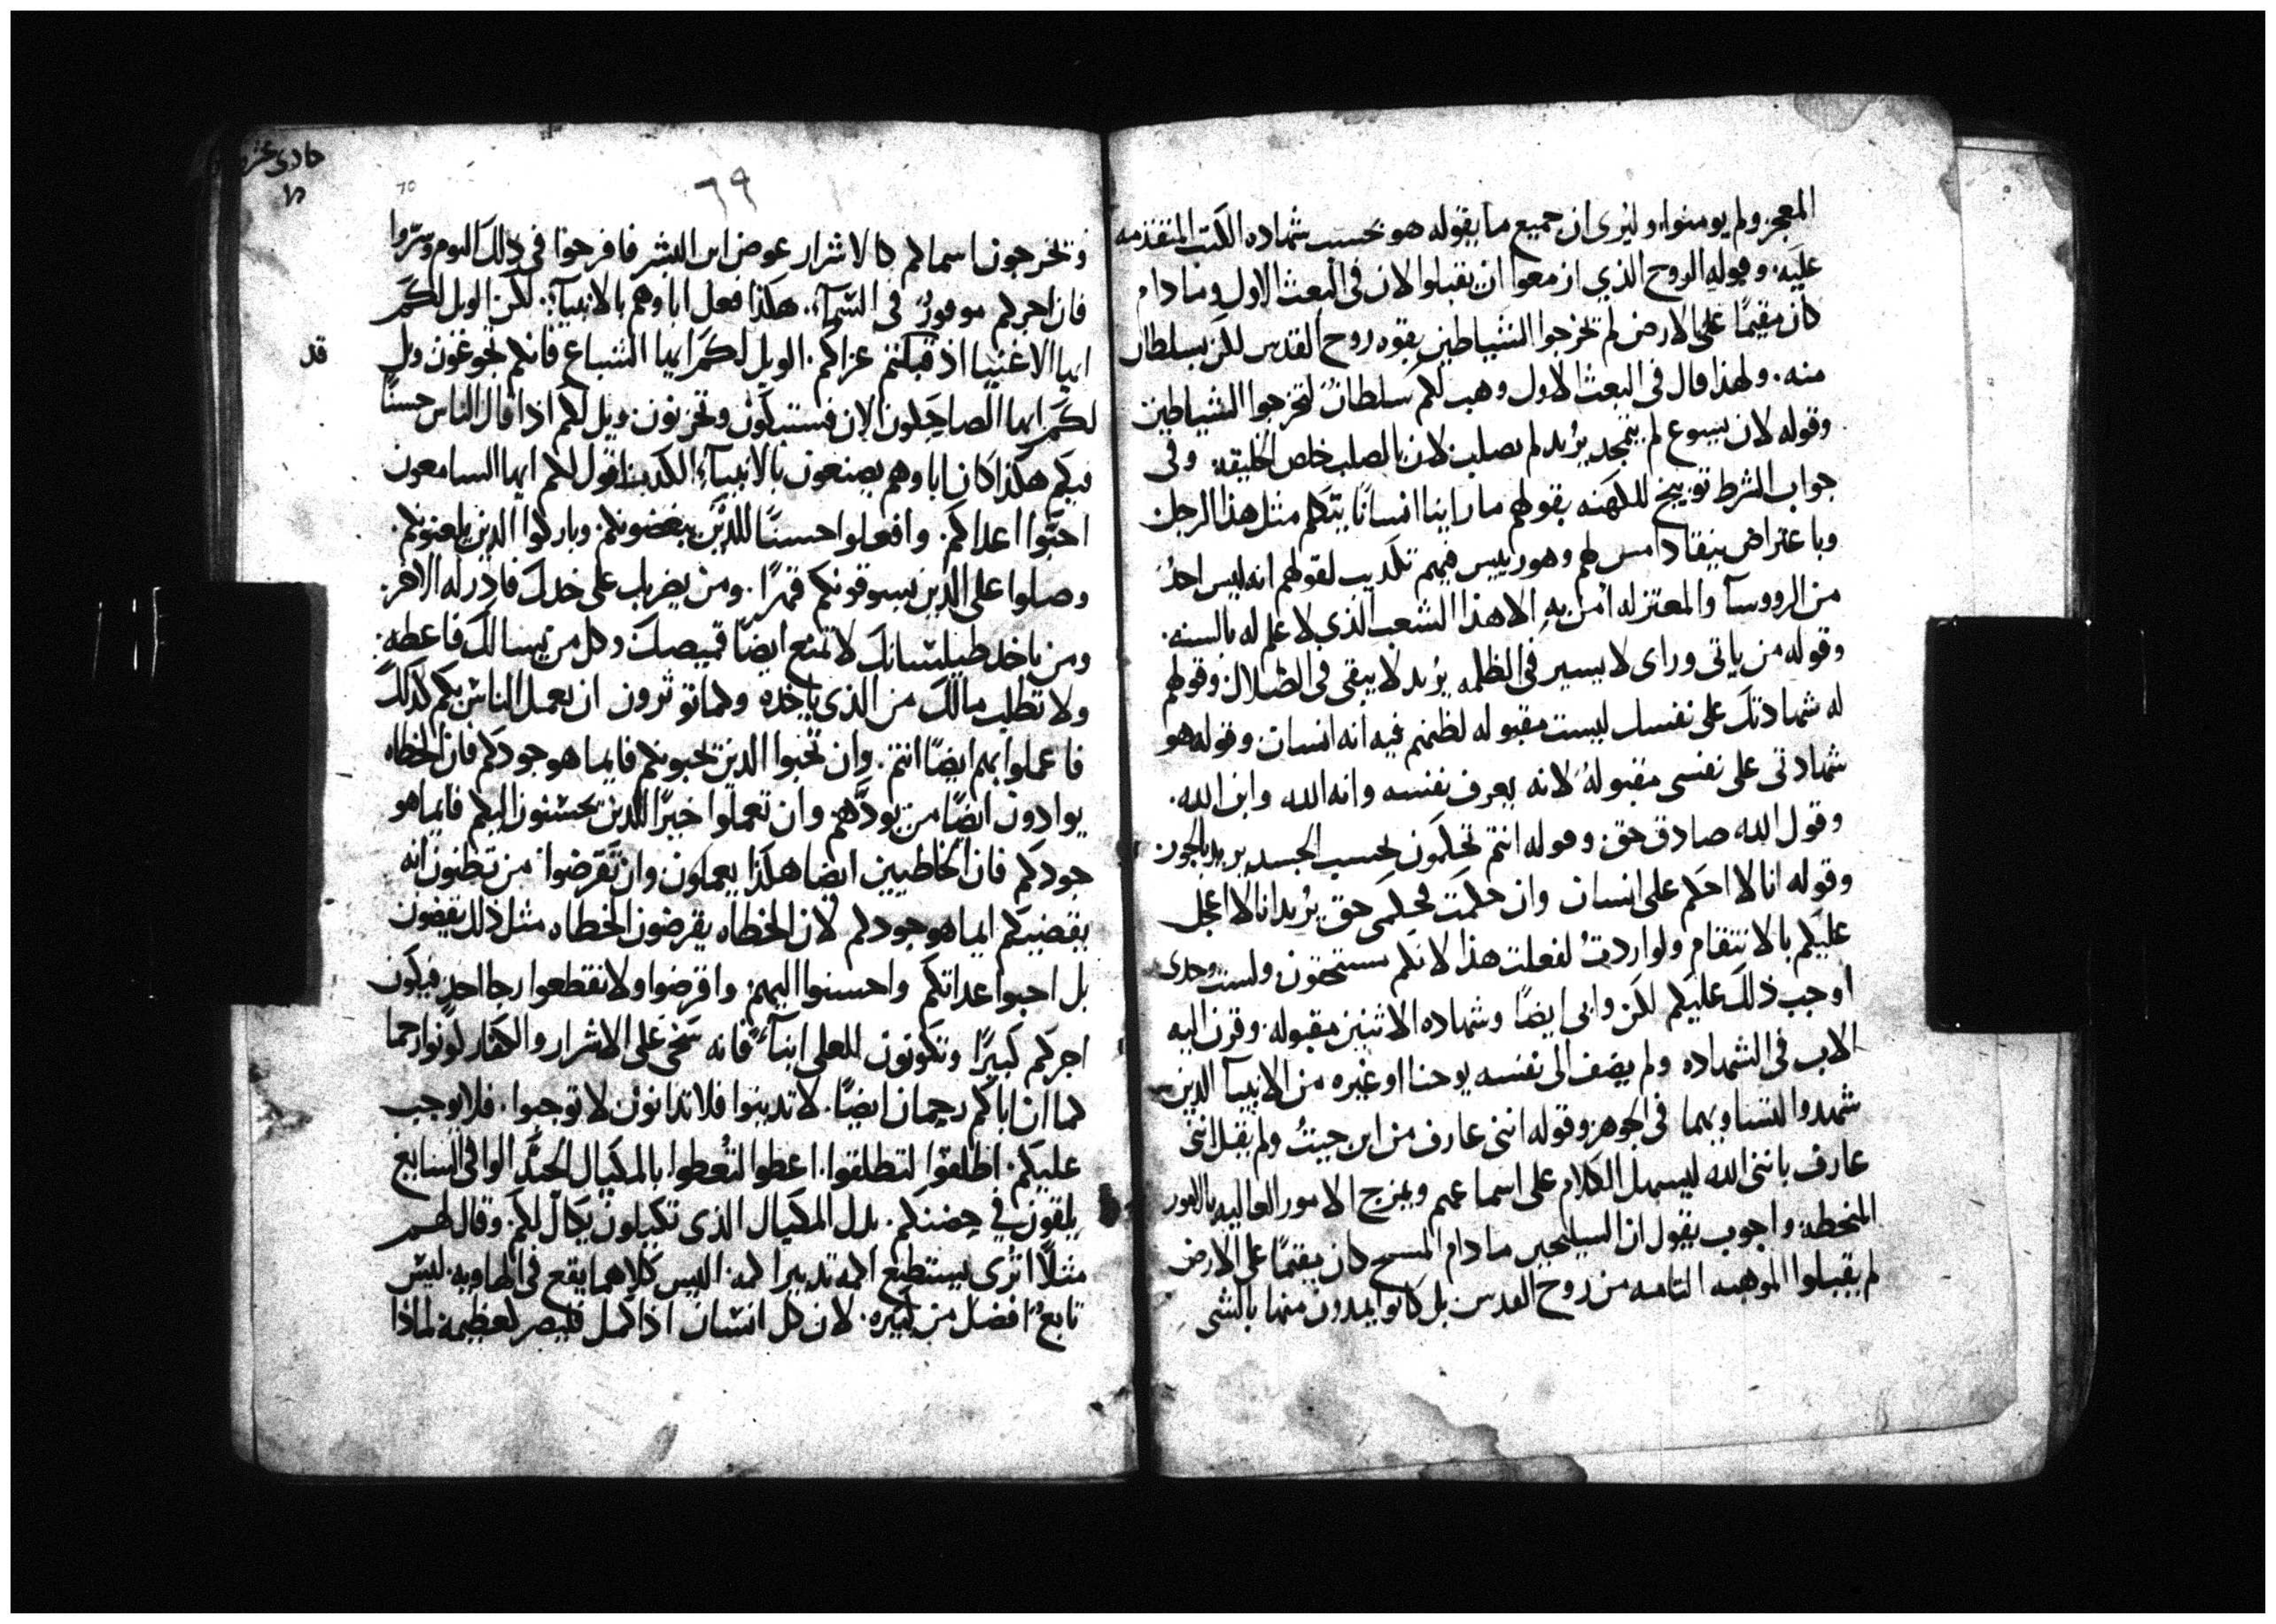 المعجز ولم يومنوا، وليُرى ان جميع ما يقوله هو بحسب شهاده الكتب المتقدمه
عليه. وقوله الروح الذي ازمعوا ان يقبلوا لان في البعث الاول وما دام
كان مقيمًا على الارض لم تخرجوا الشياطين بقوه روح القدس لكن بسلطان
منه. ولهذا قال في البعث الاول وهب لكم سلطانٌ لتخرجوا الشياطين
وقوله لان يسوع لم يتمجد يُريد لم يصلب لان بالصلب خلص الخليقة وفي
جواب الشرط توبيخ للكهنه بقولهم ما راينا انسانًا يتكلم مثل هذا الرجل
وباعتراض نيقاداموس لهم وهو رييس فيهم تكذيب لقولهم انه ليس احدٌ
من الرووسآ والمعتزله امن به الا هذا الشعب الذي لا علم له بالسنه.
وقوله من ياتي وراى لا يسير في الظلمه يُريد لا يبقى في الضلال وقولهم
له شهادتك على نفسك ليست مقبوله لظنهم فيه انه انسان وقوله هو
شهادتي على نفسي مقبولةٌ لانه يعرف نفسه وانه الله وابن الله.
وقول الله صادق حق وقوله انتم تحكمون بحسب الجسد يريد بالجور
وقوله انا لا احكم على انسان وان حكمت فحكمي حق يُريد انا لا اعجل
عليكم بالانتقام ولو اردتُ لفعلت هذا لانكم مستحقون ولست وحدى
اوجب ذلك عليكم لكن وابي ايضًا وشهاده الاثنين مقبوله. وقرن اليه
الاب في الشهاده ولم يضف الى نفسه يوحنا او غيره من الانبيآ الذين
شهدوا لتساويهما في الجوهر وقوله انني عارف من اين جيتُ ولم يقل انني
عارف بانني الله ليسهل الكلام على اسماعهم ويمزج الامور العاليه بالامور
المنحطة واجوب بقول ان السليحيين ما دام المسيح كان مقيمًا على الارض
لم يقبلوا الموهبه التامه من روح القدس بل كانوا يمدون منها بالشى
حادى عشر
٦٩
70
وتخرجون اسماكم كالاشرار عوض ابن البشر فافرحوا في ذلك اليوم وسرّوا
فان اجركم موفورٌ في السمآ. هكذا فعل اباوهم بالانبيآ. لكن الويل لكم
ايها الاغنيا اذ قبلتم عزاكم. الويل لكم ايها الشباع فانكم تجوعون ويل
قد
لكم ايها الضاحكون الان فستبكون وتحزنون ويل لكم اذا قال الناس حسنًا
فيكم هكذا كان اباوهم يصنعون بالانبيآ الكذبه اقول لكم ايها السامعون
احبّوا اعداكم. وافعلوا حسنًا للذين يبغضونكم. وباركوا الذين يلعنوكم.
وصلوا على الذين يسوقونكم قهرًا. ومن يضرب على خدك فادر له الاخر.
ومن ياخد طيلسانك لا تمنع ايضًا قميصك وكل من يسالك فاعطه.
ولا تطلب مالك من الذى ياخده وكما توثرون ان يعمل الناس بكم كذلك
فاعملوا بهم ايضًا انتم. وان تحبوا الذين يحبونكم فايما هو جودكم فان الخطاه
يوادون ايضًا من يودّهم وان تعملوا خيرًا للذين يحسنون اليكم فايما هو
جودكم فان الخاطيين ايضا هكذا يعملون وان تقرضوا من تظنون انه
يقضيكم ايما هو جودكم لان الخطاه يقرضون الخطاه مثل ذلك يقضون
بل احبوا عداتكم واحسنوا اليهم. واقرضوا ولا تقطعوا رجا احدٍ فيكون
اجركم كبيرًا وتكونون للعلى ابنآءً فانه سخى على الاشرار والكفار كونوا رحما
كما ان اباكم رحمان ايضًا. لا تدينوا فلا تدانون لا توجبوا. فلا يوجب
عليكم. اطلقوا لتطلقوا. اعطوا لتُعطوا بالمكيال الجيّد الوافي السايغ
يلقون في حضنكم. بدل المكيال الذى تكيلون يكال لكم. وقال لهم
مثلًا اترى يستطيع اكمه تدبيرا كمه اليس كلاهما يقع في الهاويه. ليس
تابعٌ افضل من كبيره. لان كل انسان اذا كمل فليصر كعظيمه لماذا